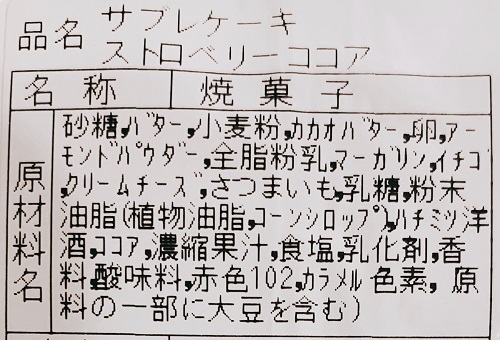 品名 サブレケーキ
ストロベリーココア
名称 焼菓子
原材料名
砂糖,ﾊﾞﾀｰ,小麦粉,ｶｶｵﾊﾞﾀｰ,卵,ｱｰ
ﾓﾝﾄﾞﾊﾟｳﾀﾞｰ,全脂粉乳,ﾏｰｶﾞﾘﾝ,ｲﾁｺﾞ
,ｸﾘｰﾑﾁｰｽﾞ,さつまいも,乳糖,粉末
油脂(植物油脂,ｺｰﾝｼﾛｯﾌﾟ),ﾊﾁﾐﾂ洋
酒,ｺｺｱ,濃縮果汁,食塩,乳化剤,香
料,酸味料,赤色102,ｶﾗﾒﾙ色素, 原
料の一部に大豆を含む)